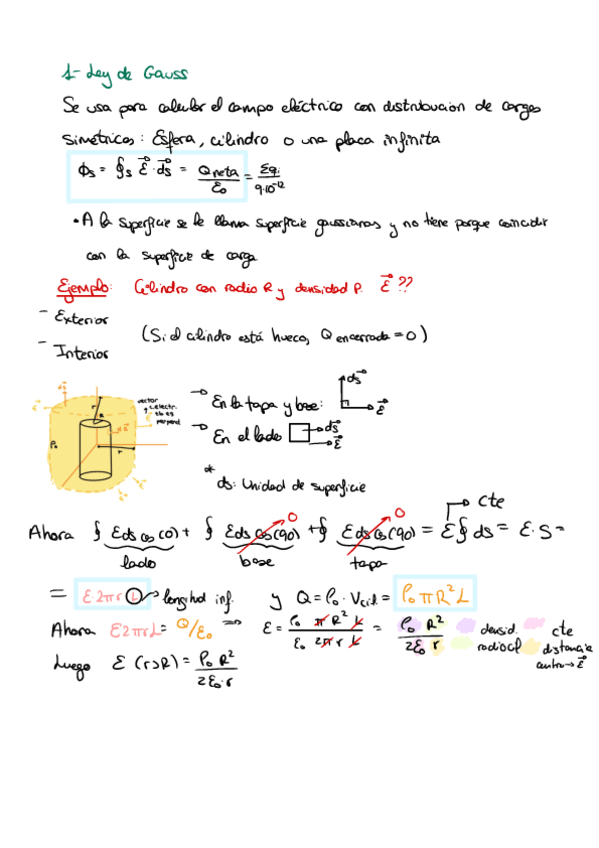 1- Ley de Gauss
Se usa para calcular el campo eléctrico con distribución de cargas
simétricas: Esfera, cilindro o una placa infinita
ϕs = ∮s E⃗ · ds⃗ = Qneta/ε₀ = Σqi/9·10⁻¹²
• A la superficie se le llama superficie gaussianas y no tiene porque coincidir
con la superficie de carga
Ejemplo: Cilindro con radio R y densidad ρ. E⃗ ??
- Exterior
(Si el cilindro está hueco, Q encerrada = 0)
- Interior
→ En la tapa y base: ds⃗ E⃗
→ En el lado ds⃗ E⃗
vector
perpend
ρ₀ r r
* ds: Unidad de superficie
cte
Ahora ∮ E ds cos(0) + ∮ E ds cos(90) 0 + ∮ E ds cos(90) 0 = E ∮ ds = E · S =
lado base tapa
= E2πrL → longitud inf. y Q = ρ₀ · Vcil. = ρ₀πR²L
Ahora E2πrL = Q/ε₀ ⇒ E = ρ₀ π R² L / ε₀ 2π r L = ρ₀ R² / 2ε₀ r densid. cte
radio cil distancia
Luego E (r>R) = ρ₀ R² / 2ε₀ · r